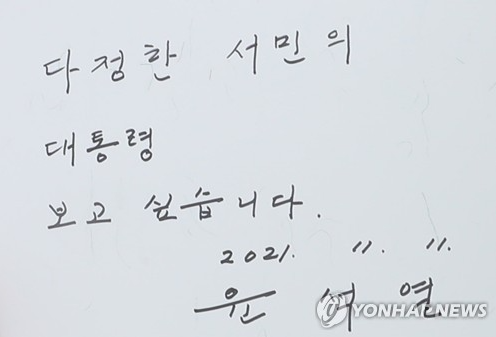 다정한 서민의
대통령
보고 싶습니다.
2021. 11. 11.
윤 석 열
YONHAP NEWS